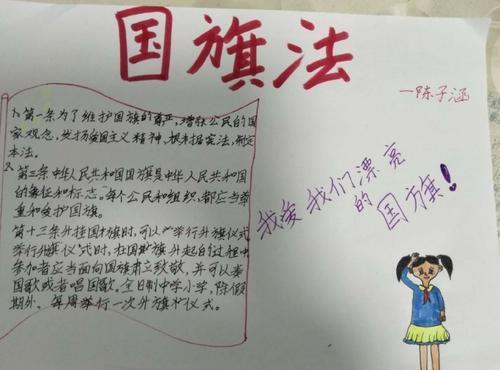 国旗法
一陈子涵
1、第一条为了维护国旗的尊严,增强公民的国
家观念,发扬爱国主义精神,根据宪法,制定
本法。
2、第三条中华人民共和国国旗是中华人民共和国
的象征和标志。每个公民和组织,都应当尊
重和爱护国旗。
第十三条升挂国旗时,可以举行升旗仪式
举行升旗仪式时,在国旗升起的过程中
参加者应当面向国旗肃立致敬,并可以奏
国歌或者唱国歌。全日制中学小学,除假
期外,每周举行一次升旗仪式。
我爱我们漂亮
的国旗!